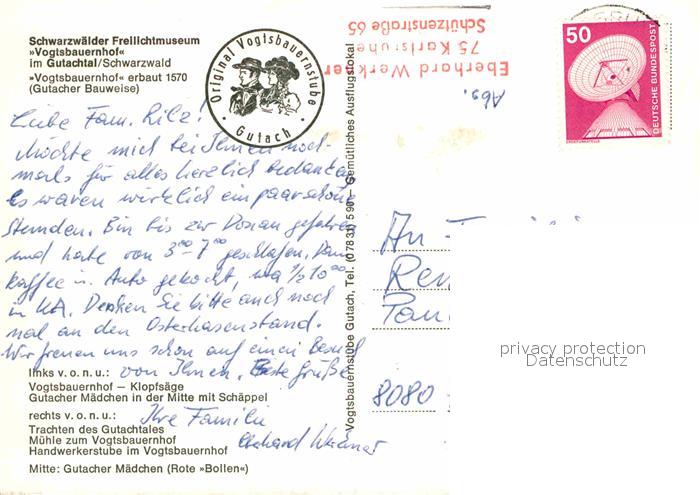 Schwarzwälder Freilichtmuseum
»Vogtsbauernhof«
im Gutachtal/Schwarzwald
»Vogtsbauernhof« erbaut 1570
(Gutacher Bauweise)
Original Vogtsbauernstube
Gutach
Eberhard Werk
75 Karlsruhe
Schützenstraße 65
Abs.
50
DEUTSCHE BUNDESPOST
ERDEFUNKSTELLE
Liebe Fam.
Möchte mich bei Ihnen noch-
mals für alles herzlich bedanken
Es waren wirklich ein paar schöne
Stunden. Bin bis zur Donau gefahren
und habe von 3⁰⁰-7⁰⁰ geschlafen. Dann
Kaffee im Auto gekocht, ½ 10⁰⁰
in KA. Denken Sie bitte auch noch
mal an den Osterhasenstand.
Wir freuen uns schon auf einen Besuch
von Ihnen. Beste Grüße
Ihre Familie
links v. o. n. u.:
Vogtsbauernhof — Klopfsäge
Gutacher Mädchen in der Mitte mit Schäppel
rechts v. o. n. u.:
Trachten des Gutachtales
Mühle zum Vogtsbauernhof
Handwerkerstube im Vogtsbauernhof
Mitte: Gutacher Mädchen (Rote »Bollen«)
Vogtsbauernstube Gutach, Tel. (0 78 33) 5 90 — Gemütliches Ausflugslokal
An
8080
privacy protection
Datenschutz